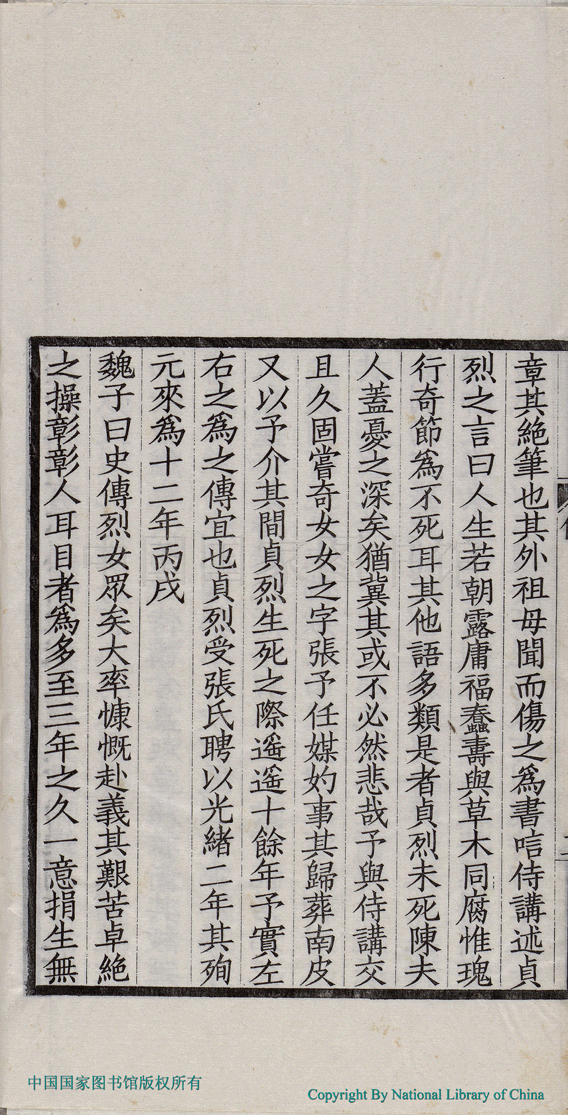 章其絶筆也其外祖母聞而傷之爲書唁侍講述貞
烈之言曰人生若朝露庸福蠢壽與草木同腐惟瑰
行奇節爲不死耳其他語多類是者貞烈未死陳夫
人蓋憂之深矣猶冀其或不必然悲哉予與侍講交
且久固嘗奇女女之字張予任媒妁事其歸葬南皮
又以予介其間貞烈生死之際遥遥十餘年予實左
右之爲之傳宜也貞烈受張氏聘以光緒二年其殉
元來爲十二年丙戌
魏子曰史傳烈女眾矣大率慷慨赴義其艱苦卓絶
之操彰彰人耳目者爲多至三年之久一意捐生無
中国国家图书馆版权所有
Copyright By National Library of China